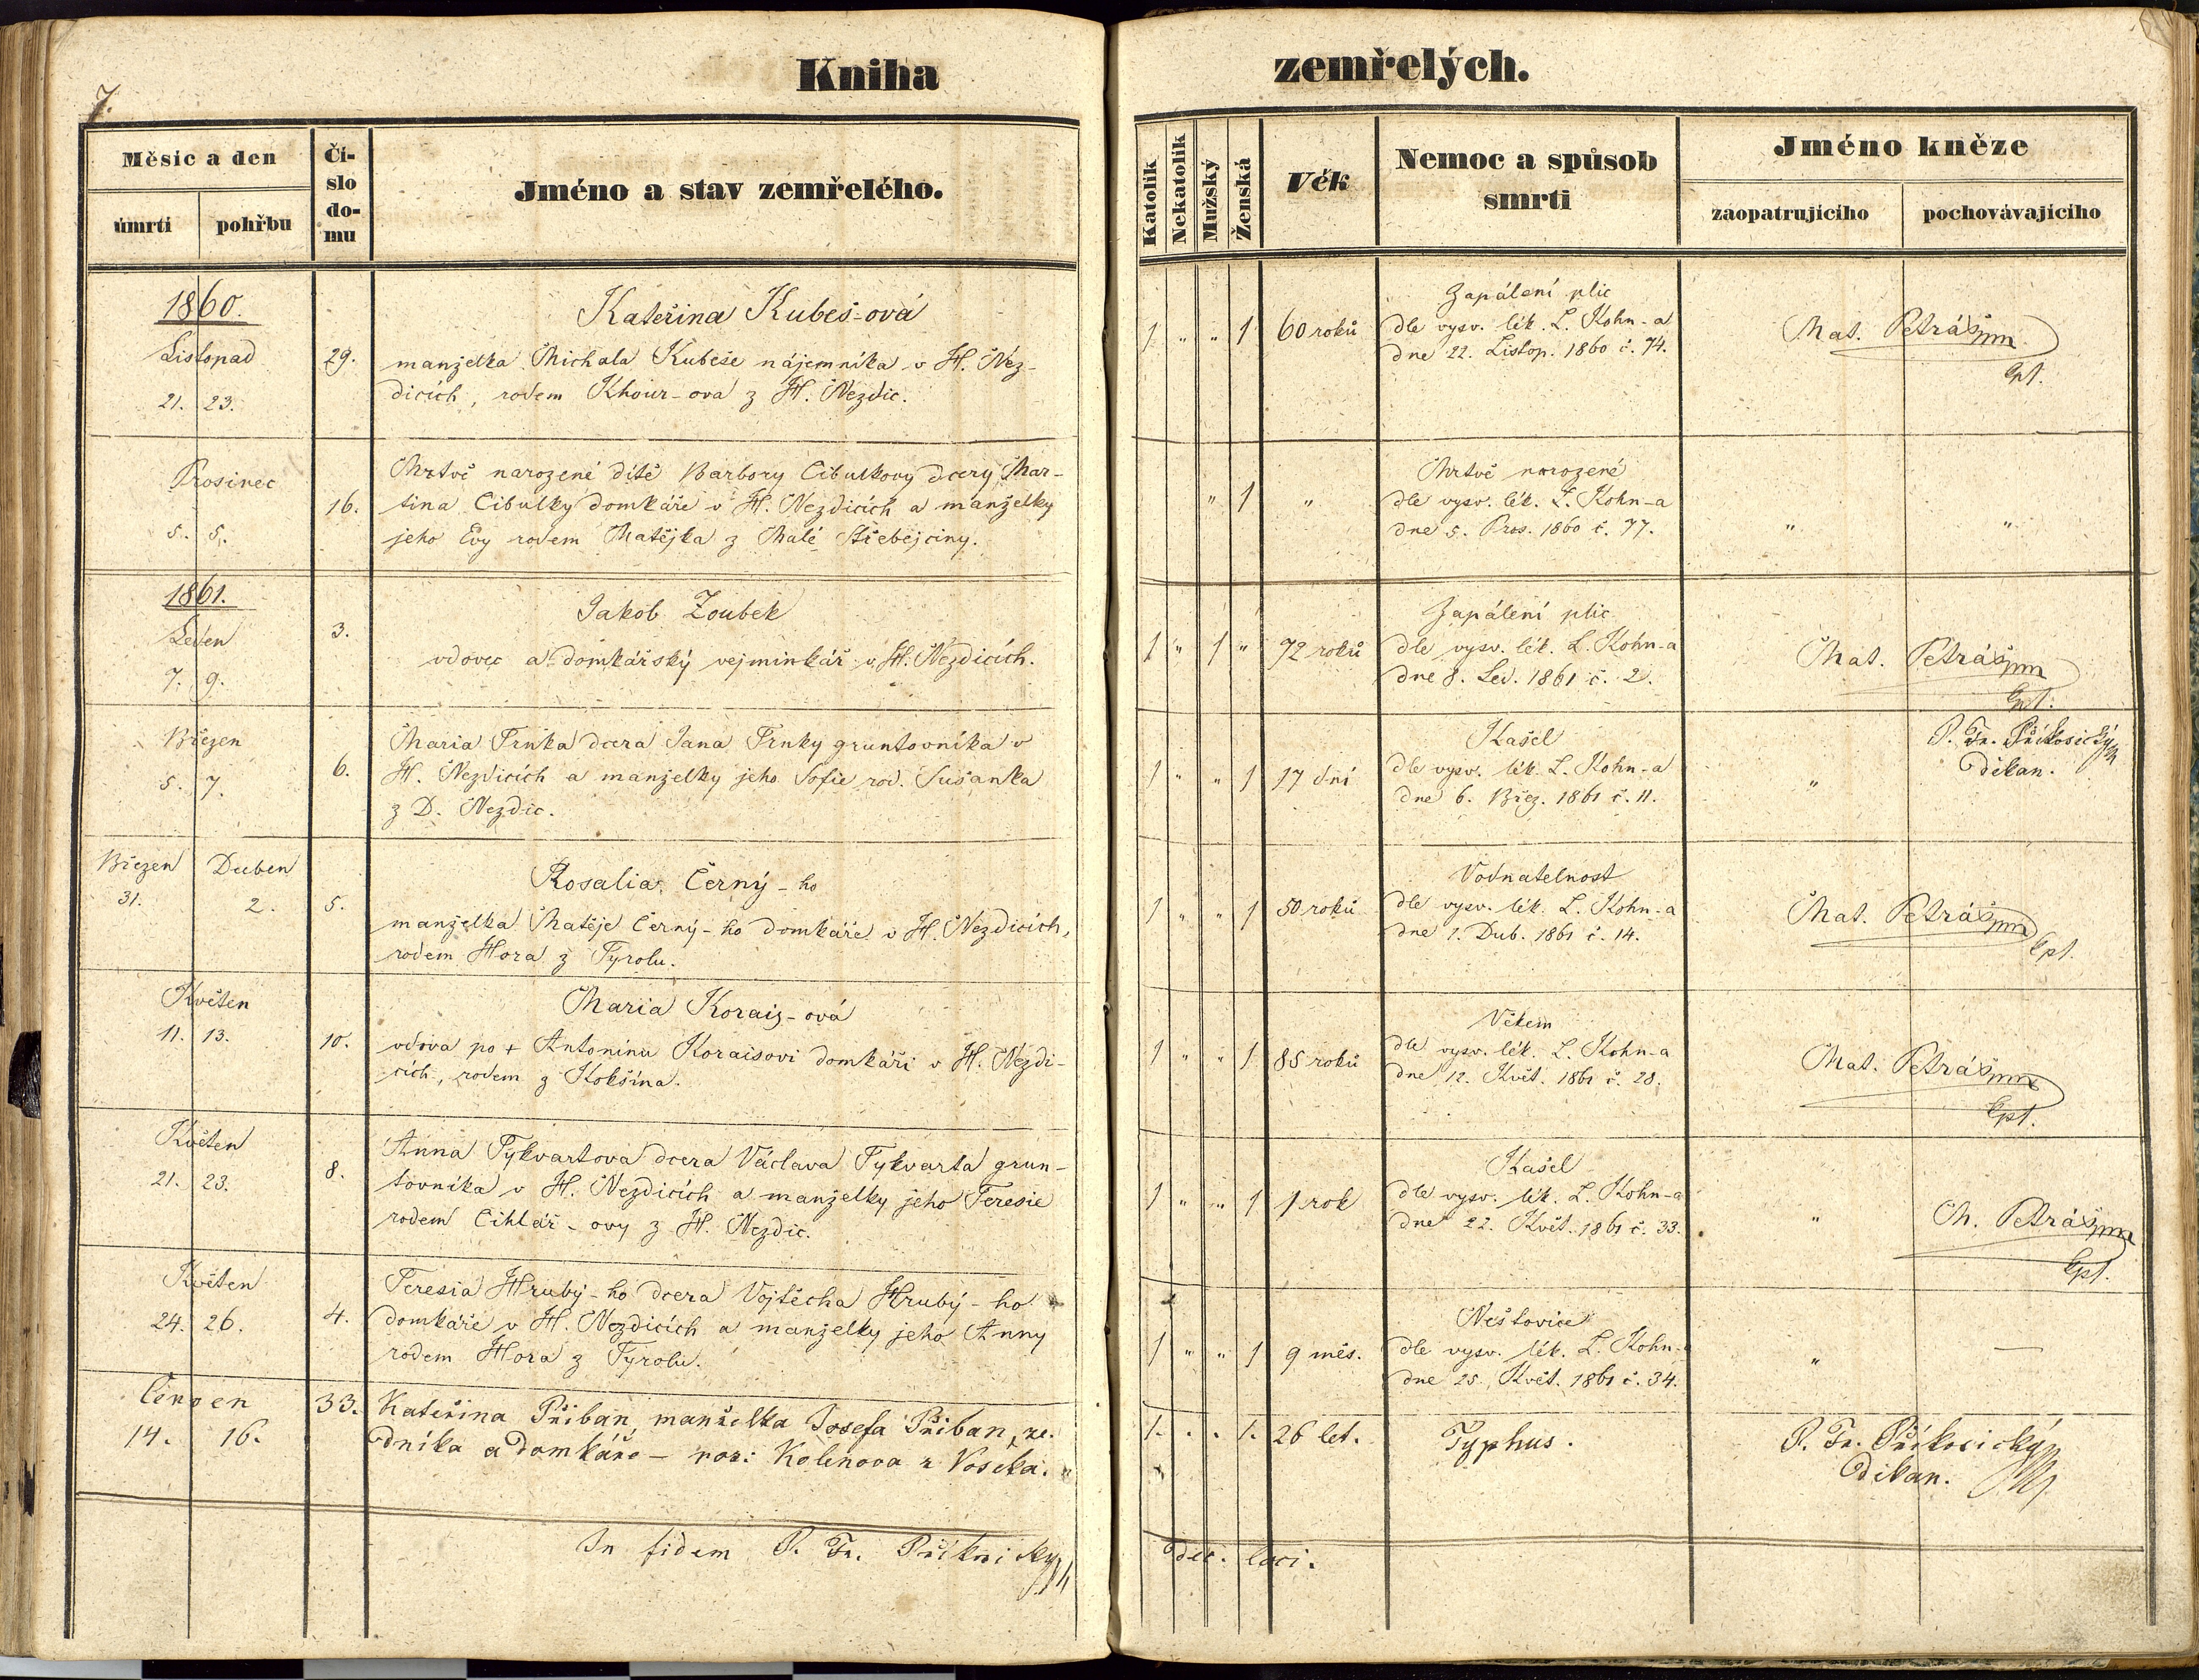 7.
Kniha zemřelých.
Měsíc a den
úmrtí
pohřbu
Čí-
slo
do-
mu
Jméno a stav zemřelého.
Katolík
Nekatolík
Mužský
Ženská
Věk
Nemoc a spůsob
smrti
Jméno kněze
zaopatrujícího
pochovávajícího
1860.
Listopad
21. 23.
29.
Kateřina Kubeš-ová
manželka Michala Kubeše nájemníka v H. Nez-
dicích, rodem Khour-ova z H. Nezdic.
1 " " 1 60 roků
Zapálení plic
dle vysv. lék. L. Kohn-a
dne 22. Listop. 1860 č. 74.
Mat. Petráš mm
Cpl.
Prosinec
5. 5.
16.
Mrtvě narozené dítě Barbory Cibulkovy dcery Mar-
tina Cibulky domkáře v H. Nezdicích a manželky
jeho Evy rodem Matějka z Malé Střebejciny.
" 1 "
Mrtvě narozené
dle vysv. lék. L. Kohn-a
dne 5. Pros. 1860 č. 77.
" "
1861.
Leden
7. 9.
3.
Jakob Zoubek
vdovec a domkářský vejminkář v H. Nezdicích.
1 " 1 " 72 roků
Zapálení plic
dle vysv. lék. L. Kohn-a
dne 8. Led. 1861 č. 2.
Mat. Petráš mm
Cpl.
Březen
5. 7.
6.
Maria Trnka dcera Jana Trnky gruntovníka v
H. Nezdicích a manželky jeho Sofie rod. Sušanka
z D. Nezdic.
1 " " 1 17 dní
Kašel
dle vysv. lék. L. Kohn-a
dne 6. Břez. 1861 č. 11.
"
P. Fr. Příkosický
děkan.
Březen Duben
31. 2.
5.
Rosalia Černý-ho
manželka Matěje Černý-ho domkáře v H. Nezdicích,
rodem Hora z Tyrolu.
1 " " 1 50 roků
Vodnatelnost
dle vysv. lék. L. Kohn-a
dne 1. Dub. 1861 č. 14.
Mat. Petráš mm
Cpl.
Květen
11. 13.
10.
Maria Korais-ová
vdova po + Antonínu Koraisovi domkáři v H. Nezdi-
cích, rodem z Kokšína.
1 " " 1 85 roků
Věkem
dle vysv. lék. L. Kohn-a
dne 12. Květ. 1861 č. 28.
Mat. Petráš mm
Cpl.
Květen
21. 23.
8.
Anna Tykvartova dcera Václava Tykvarta grun-
tovníka v H. Nezdicích a manželky jeho Teresie
rodem Cihlář-ovy z H. Nezdic.
1 " " 1 1 rok
Kašel
dle vysv. lék. L. Kohn-a
dne 22. Květ. 1861 č. 33.
"
M. Petráš mm
Cpl.
Květen
24. 26.
4.
Teresia Hrubý-ho dcera Vojtěcha Hrubý-ho
domkáře v H. Nezdicích a manželky jeho Anny
rodem Hora z Tyrolu.
1 " " 1 9 měs.
Neštovice
dle vysv. lék. L. Kohn-
dne 25. Květ. 1861 č. 34.
" —
Červen
14. 16.
33.
Kateřina Přiban, manželka Josefa Přiban, ze-
dníka a domkáře – roz: Kolenova z Voseka.
1. . . 1. 26 let.
Typhus.
P. Fr. Příkosický
děkan.
In fidem P. Fr. Příkosický
dec. loci.